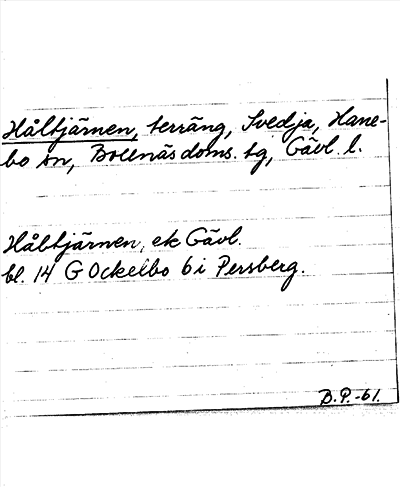 Håltjärnen, terräng, Svedja, Hane-
bo sn, Bollnäs doms. tg, Gävl. l.
Håltjärnen, ek Gävl.
bl. 14 G Ockelbo 6 i Persberg.
B.P.-61.